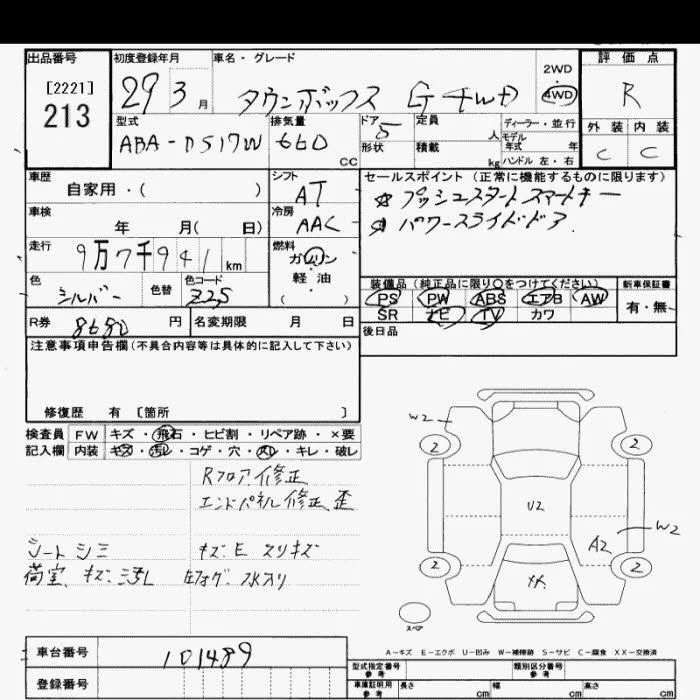 出品番号
[2221]
213
初度登録年月
29 3 月
車名・グレード
タウンボックス G 4WD
2WD
4WD
評価点
R
外装 内装
C C
型式
ABA-DS17W
排気量
660 CC
ドア 5
形状
定員 人
積載 kg
ディーラー・並行
モデル年式 年
ハンドル 左・右
車歴
自家用・( )
シフト
AT
セールスポイント (正常に機能するものに限ります)
☆ プッシュスタート スマートキー
☆ パワースライドドア
車検
年 月( 日)
冷房
AAC
走行
9万7千941 km
燃料
ガソリン
軽・油
( )
色
シルバー
色替
色コード
Z2S
装備品 (純正品に限り○をつけてください)
PS PW ABS エアB AW
SR ナビ TV カワ
新車保証書
有・無
R券
8680 円
名変期限 月 日
後日品
注意事項申告欄(不具合内容等は具体的に記入して下さい)
修復歴 有 [箇所 ]
検査員
記入欄
FW キズ・飛石・ヒビ割・リペア跡・×要
内装 キズ・汚レ・コゲ・穴・スレ・キレ・破レ
Rフロア修正
エンドパネル修正 歪
シートシミ
キズE スリキズ
荷室 キズ汚レ
左フォグ 水入り
W2
2
2
U2
A2
W2
2
2
XX
スペア
A−キズ E−エクボ U−凹み W−補修跡 S−サビ C−腐食 XX−交換済
車台番号
101489
登録番号
型式指定番号
参考
類別区分番号
参考
車庫証明用
参考
長さ cm
幅 cm
高さ cm